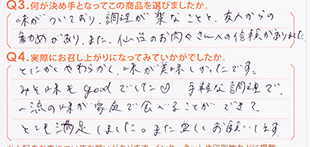 Q3.何が決め手となってこの商品を選びましたか。
味がついており、調理が楽なことと、友人からの
勧めがあり、また、仙台のお肉やさんへの信頼がありました。
Q4.実際にお召し上がりになってみていかがでしたか。
とにかくやわらかく、味が美味しかったです。
みそ味もgoodでした 手軽な調理で、
一流の味が家庭で食べることができて
とても満足しました。また宜しくお願いします